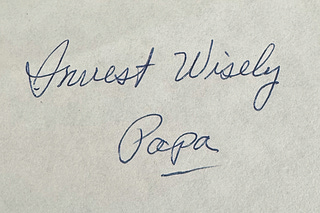 Invest Wisely
Papa